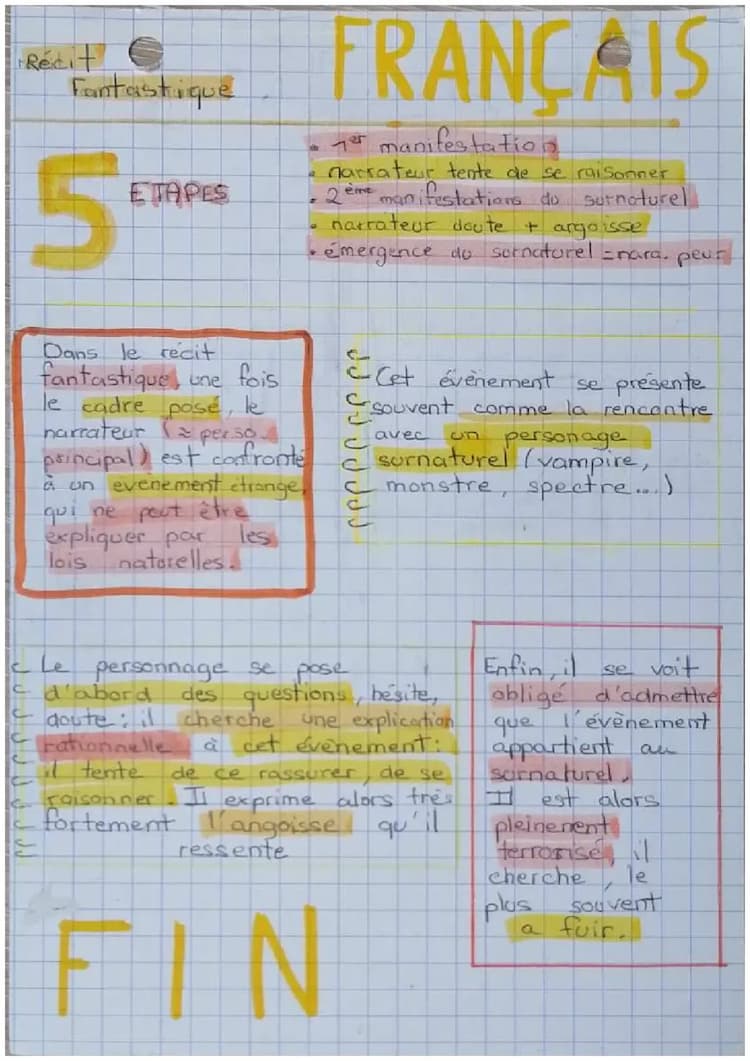 Récit
Fantastique
FRANÇAIS
5
ETAPES
• 1er manifestation
• narrateur tente de se raisonner
• 2ème manifestations du surnaturel
• narrateur doute + angoisse
• émergence du surnaturel = nara. peur
Dans le récit
fantastique, une fois
le cadre posé, le
narrateur (≈ perso.
principal) est confronté
à un evenement étrange,
qui ne peut être
expliquer par les
lois naturelles.
Cet évènement se présente
souvent comme la rencontre
avec un personage
surnaturel (vampire,
monstre, spectre...)
Le personnage se pose
d'abord des questions, hésite,
doute : il cherche une explication
rationnelle à cet évènement :
il tente de ce rassurer, de se
raisonner. Il exprime alors très
fortement l'angoisse qu'il
ressente
Enfin, il se voit
obligé d'admettre
que l'évènement
appartient au
surnaturel.
Il est alors
pleinement
terrorisé, il
cherche, le
plus souvent
a fuir.
FIN